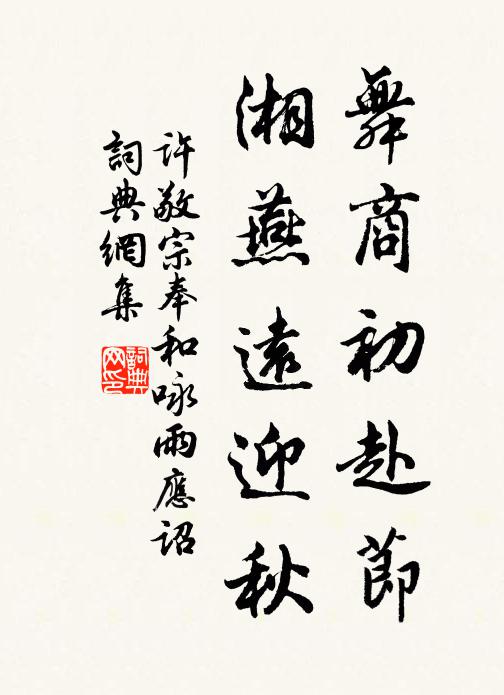 舞商初赴節
湘燕遠迎秋
許敬宗奉和咏雨應詔
詞典網集
詞典網印